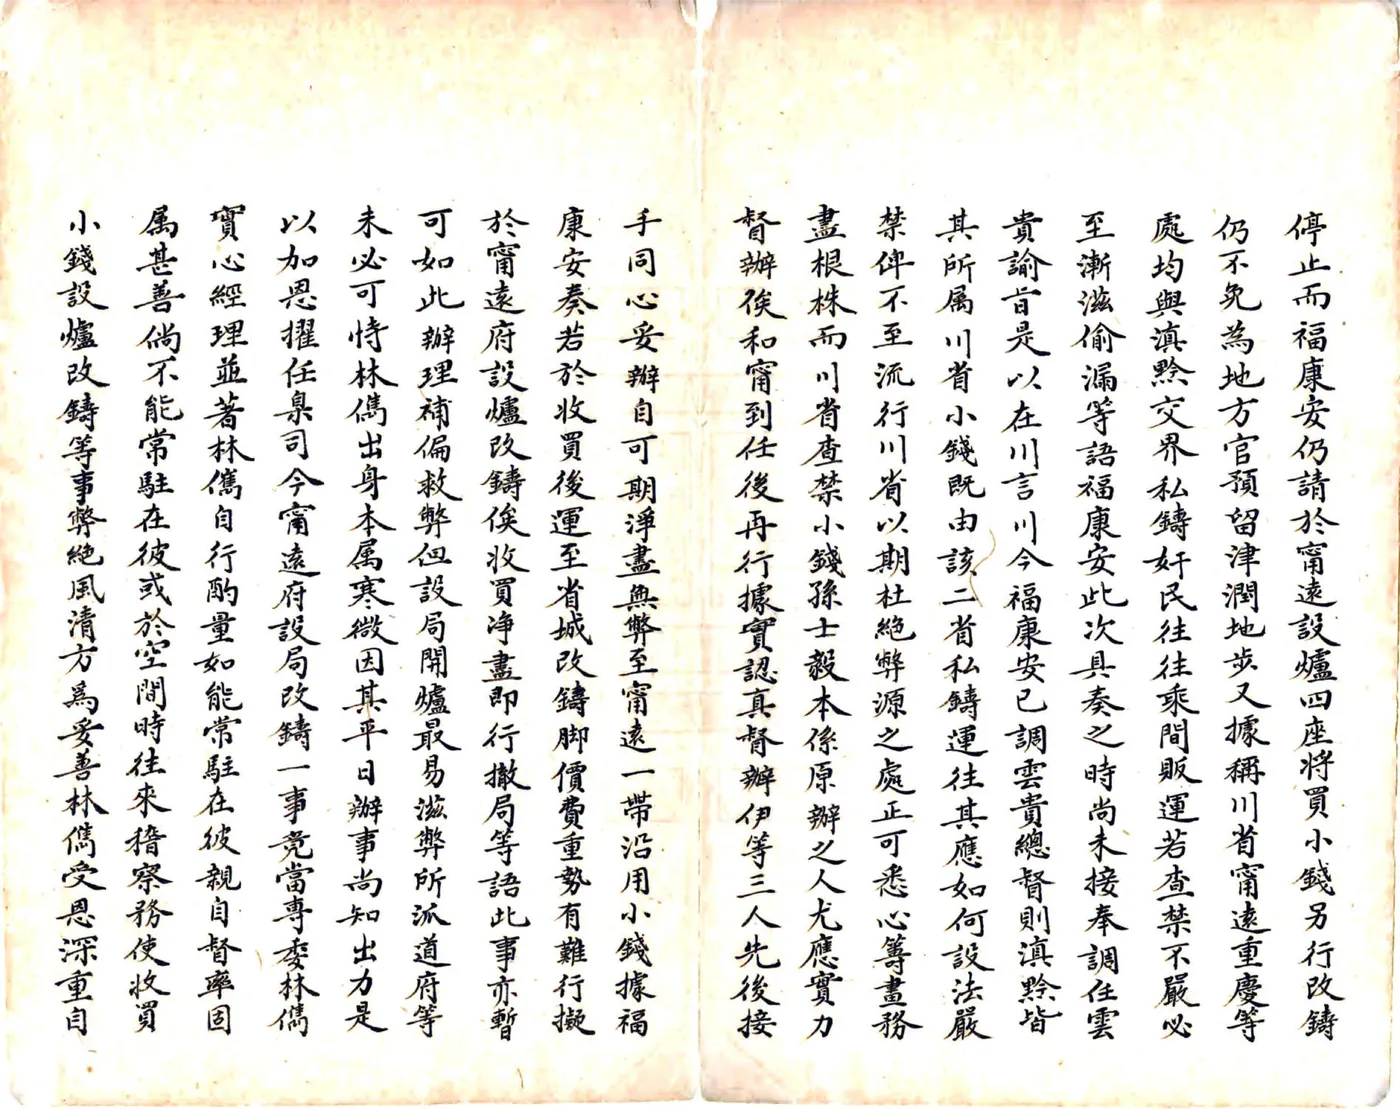 停止而福康安仍請於甯遠設爐四座將買小錢另行改鑄
仍不免為地方官預留津潤地步又據稱川省甯遠重慶等
處均與滇黔交界私鑄奸民往往乘間販運若查禁不嚴必
至漸滋偷漏等語福康安此次具奏之時尚未接奉調任雲
貴諭旨是以在川言川今福康安已調雲貴總督則滇黔皆
其所属川省小錢既由該二省私鑄運往其應如何設法嚴
禁俾不至流行川省以期杜絶弊源之處正可悉心籌畫務
盡根株而川省查禁小錢孫士毅本係原辦之人尤應實力
督辦俟和甯到任後再行據實認真督辦伊等三人先後接
手同心妥辦自可期淨盡無弊至甯遠一帶沿用小錢據福
康安奏若於收買後運至省城改鑄脚價費重勢有難行擬
於甯遠府設爐改鑄俟收買净盡即行撤局等語此事亦暫
可如此辦理補偏救弊但設局開爐最易滋弊所派道府等
未必可恃林儁出身本属寒微因其平日辦事尚知出力是
以加恩擢任臬司今甯遠府設局改鑄一事竟當專委林儁
實心經理並著林儁自行酌量如能常駐在彼親自督率固
属甚善倘不能常駐在彼或於空間時往來稽察務使收買
小錢設爐改鑄等事弊絶風清方為妥善林儁受恩深重自